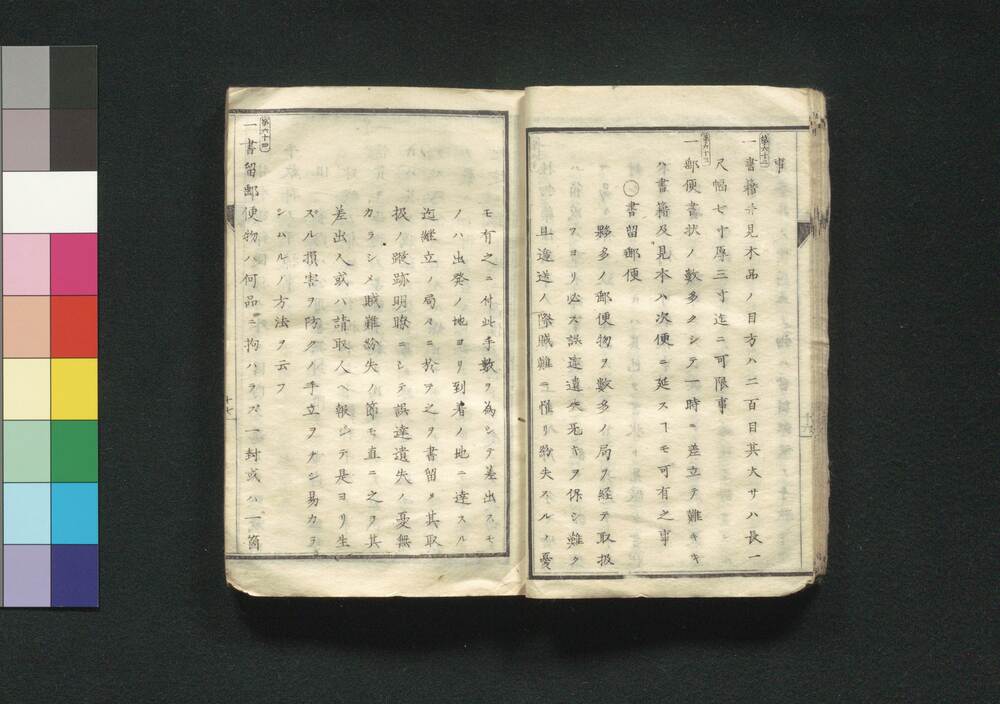 事
第六十二
一書籍并見本品ノ目方ハ二百目其大サハ長一
尺幅七寸厚三寸迄ニ可限事
第六十三
一郵便書状ノ數多クシテ一時ニ差立テ難キキ
ハ書籍及見本ハ次便ニ延スヿモ可有之事
○書留郵便
夥多ノ郵便物ヲ數多ノ局ヲ経テ取扱
フヨリ必ス誤達遺失死キヲ保シ難ク
且遞送ノ際賊難ニ罹リ紛失スルノ憂
十六
モ有之ニ付此手數ヲ為シテ差出スモ
ノハ出発ノ地ヨリ到着ノ地ニ達スル
迄継立ノ局々ニ於テ之ヲ書留メ其取
扱ノ蹤跡明瞭ニシテ誤達遺失ノ憂無
カラシメ賊難紛失ノ節モ直ニ之ヲ其
差出人或ハ請取人ヘ報シテ是ヨリ生
スル損害ヲ防クノ手立ヲナシ易カラ
シムルノ方法ヲ云フ
第六十四
一書留郵便物ハ何品ニ拘ハラス一封或ハ一箇
十七